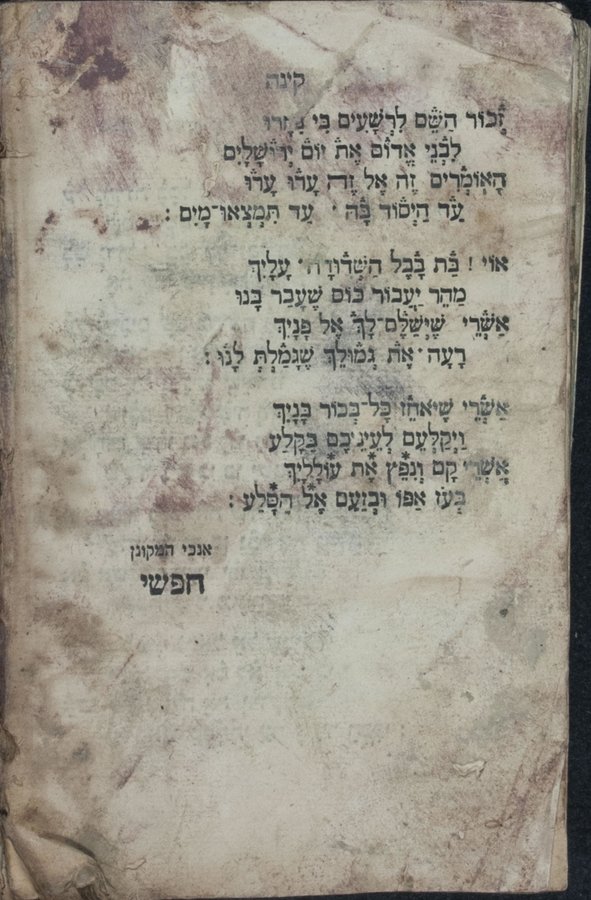 קינה
זְכוֹר הַשֵּׁם לִרְשָׁעִים כִּי
לִבְנֵי אֱדוֹם אֶת יוֹם יְרוּשָׁלָיִם
הָאוֹמְרִים זֶה אֶל זֶה עָרוּ עָרוּ
עַד הַיְסוֹד בָּהּ עַד תִּמְצְאוּ־מָיִם :
אוֹי ! בַּת בָּבֶל הַשְּׁדוּדָה עָלָיִךְ
מַהֵר יַעֲבוֹר כּוֹס שֶׁעָבַר בָּנוּ
אַשְׁרֵי שֶׁיְשַׁלֶּם־לָךְ אֶל פָּנָיִךְ
רָעָה אֶת גְּמוּלֵךְ שֶׁגָּמַלְתְּ לָנוּ :
אַשְׁרֵי שֶׁיֹּאחֵז כָּל־בְּכוֹר בָּנָיִךְ
וַיְקַלְּעֵם לְעֵינֵיכֶם בַּקֶּלַע
אַשְׁרֵי קָם וְנִפֵּץ אֶת עוֹלָלָיִךְ
בְּעֹז אַפּוֹ וּבְזַעַם אֶל הַסָּלַע :
אנכי המקונן
חפשי